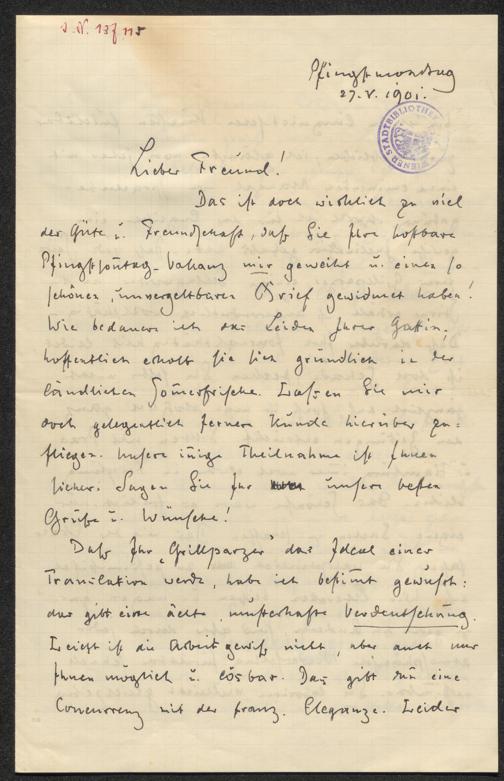 J. N. 137 115
Pfingstmontag
27. V. 1901.
WIENER STADTBIBLIOTHEK
Lieber Freund!
Das ist doch wirklich zu viel
der Güte u. Freundschaft, daß Sie Ihre kostbare
Pfingstsonntag-Vakanz mir geweiht u. einen so
schönen, unvergeltbaren Brief gewidmet haben!
Wie bedauere ich das Leiden Ihrer Gattin.
hoffentlich erholt sie sich gründlich in der
ländlichen Som̄erfrische. Lassen Sie mir
doch gelegentlich fernere Kunde hierüber zu-
fliegen. Unsere in̄ige Theilnahme ist Ihnen
sicher. Sagen Sie Ihr unsere besten
Grüße u. Wünsche!
Daß Ihr „Grillparzer" das Ideal einer
Translation werde, habe ich bestim̄t gewußt:
das gibt eine ächte, musterhafte Verdeutschung.
Leicht ist die Arbeit gewiß nicht, aber auch nur
Ihnen möglich u. lösbar. Das gibt nun eine
Concurrenz mit der franz. Eleganze. Leider